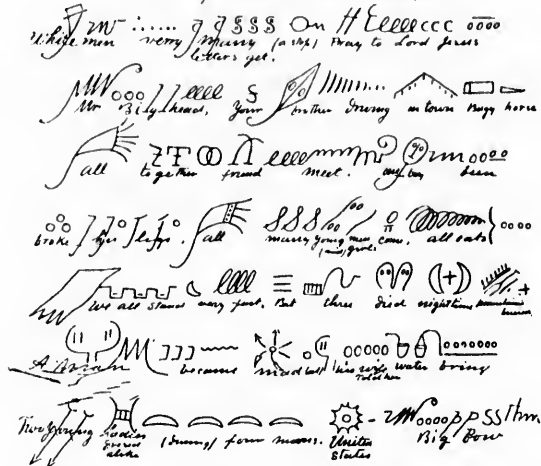 White men very many (a ship) Pray to Lord Jesus
letters get.
Mr Big head, Your brother driving in town Bugg horse
all together friend meet. any boy been
broke legs legs. all many young men (and) girls come, all eats
We all stand very fast. But three died nighttime
A man became mad bull his wife told her water bring
Two young Ladies (dummy) four moons. United States Big Bow